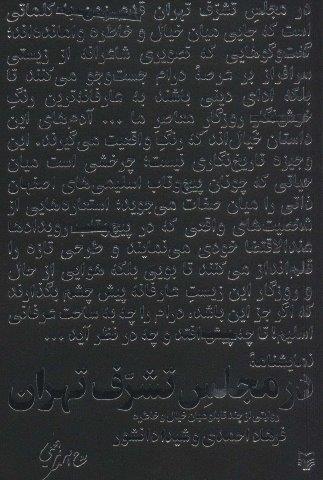 در مجلس تشرّف تهران قدم‌
است که جایی میان خیال و خاطره وامانده‌اند؛
گفت‌وگوهایی که تصویری شاعرانه از زیستی
سرافراز بر عرصهٔ درام جست‌وجو می‌کنند تا
بلکه ادای دینی باشند به عارفانه‌ترین رنگِ
روزگار معاصر ما ... آدم‌های این
داستان خیال‌اند که رنگ واقعیت می‌گیرند. این
وجیزه تاریخ‌نگاری نیست؛ چرخشی است میان
خیالی که چونان پیچ‌وتاب اسلیمی‌های اصفهان
ذاتی را میان صفات می‌جوید؛ استعاره‌هایی از
شخصیت‌های واقعی که در رویدادها
عندالاقتضا خودی می‌نمایند و طرحی تازه را
قلم‌انداز می‌کنند تا بویی بلکه هوایی از حال
و روزگار این زیستِ عارفانه پیش چشم بگذارند
که اگر جز این باشد، درام را چه به ساحت عرفانی
اسلیم! تا چه افتد و چه در نظر آید ...
نمایشنامهٔ
در مجلس تشرّف تهران
روایتی از چند تابلو میان خیال و خاطره
فرهاد احمدی و شیدا دانشور